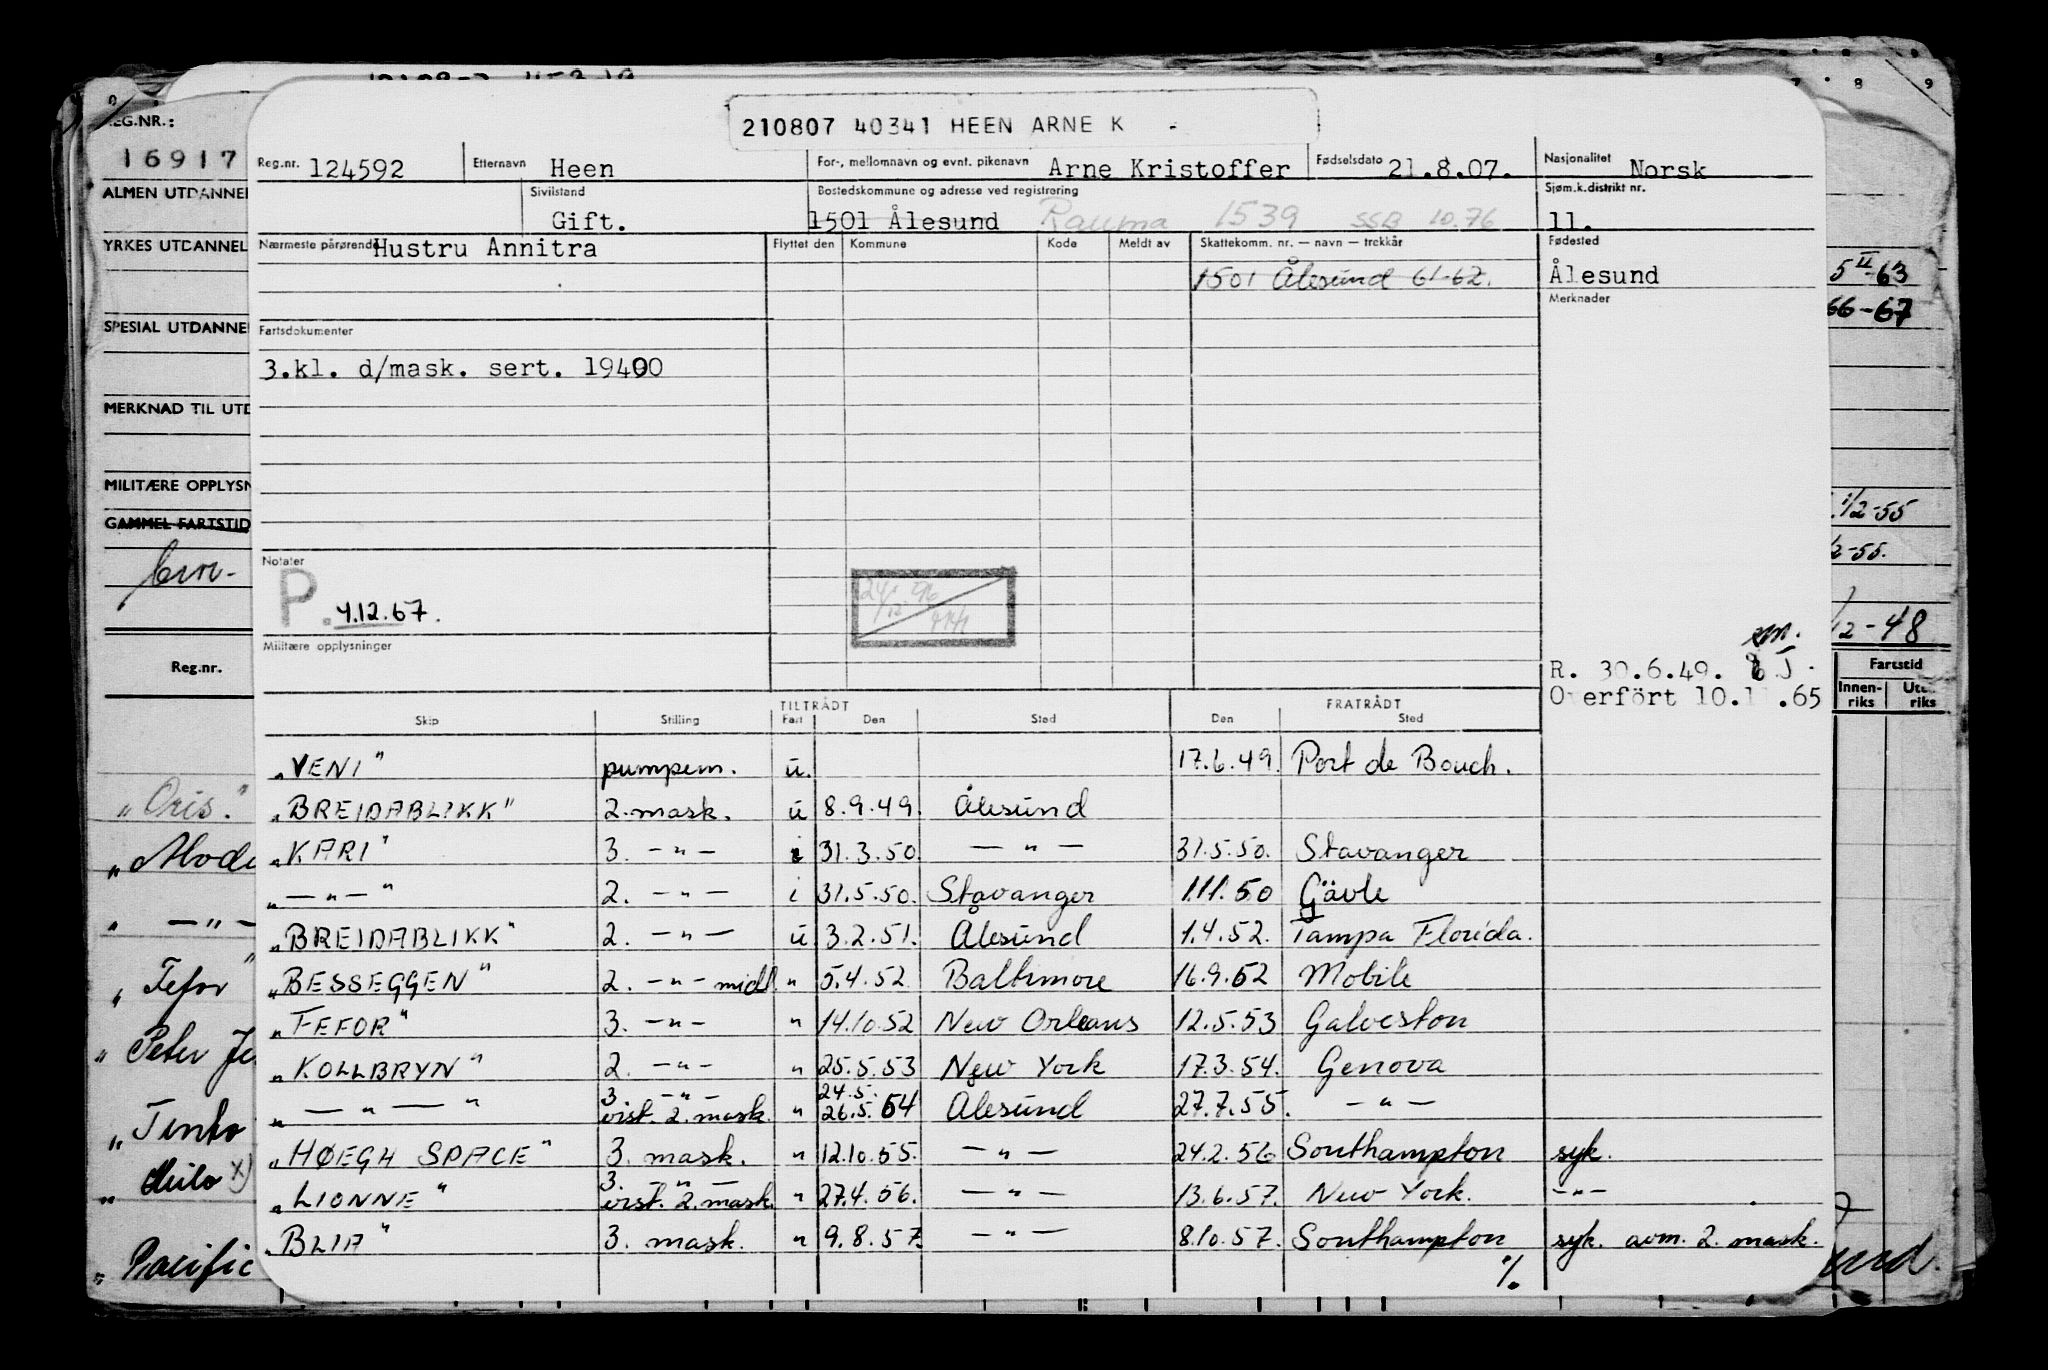 210807 40341 HEEN ARNE K -
REG.NR.:
16917
ALMEN UTDANNEL
YRKES UTDANNEL
SPESIAL UTDANNEL
MERKNAD TIL UTD
MILITÆRE OPPLYSN
GAMMEL FARTSTID
Reg.nr.
"Oris."
"Tefor"
"Peter Je
"Tento
"Pacific
Reg.nr. 124592 Etternavn Heen For-, mellomnavn og evnt. pikenavn Arne Kristoffer Fødselsdato 21.8.07. Nasjonalitet Norsk
Sivilstand Gift. Bostedskommune og adresse ved registrering 1501 Ålesund Rauma 1539 SSB 10.76 Sjøm.k.distrikt nr. 11.
Nærmeste pårørende Hustru Annitra Flyttet den Kommune Kode Meldt av Skattekomm. nr. — navn — trekkår Fødested
1501 Ålesund 61-62. Ålesund
Merknader
Fartsdokumenter
3.kl. d/mask. sert. 19400
Notater
P. 4.12.67.
Militære opplysninger
R. 30.6.49.
Overfört 10.11.65
TILTRÅDT FRATRÅDT
Skip Stilling Fart Den Sted Den Sted
"VENI" pumpem. u. 17.6.49. Port de Bouch.
"BREIDABLIKK" 2. mask. u 8.9.49. Ålesund
"KARI" 3. —"— i 31.3.50 —"— 31.5.50. Stavanger
"—"—" 2. —"— i 31.5.50. Stavanger 1.11.50 Gävle
"BREIDABLIKK" 2. —"— u 3.2.51. Ålesund 1.4.52. Tampa Florida.
"BESSEGGEN" 2. —"— midl. " 5.4.52. Baltimore 16.9.52 Mobile
"FEFOR" 3. —"— " 14.10.52 New Orleans 12.5.53 Galveston
"KOLLBRYN" 2. —"— " 25.5.53 New York 17.3.54. Genova
"—"—" 3. —"— vist. 2. mask. " 24.5. 26.5.54 Ålesund 27.7.55. —"—
"HØEGH SPACE" 3. mask. " 12.10.55. —"— 24.2.56 Southampton syk.
"LIONNE" 3. —"— vist. 2. mask. " 27.4.56. —"— 13.6.57. New York. —"—
"BLIA" 3. mask. " 9.8.57. —"— 8.10.57. Southampton syk. avm. 2. mask.
%
8 9
5 II-63
66-67
1/2-55
/2-55.
/2-48
Fartstid
Innen-riks Uten-riks